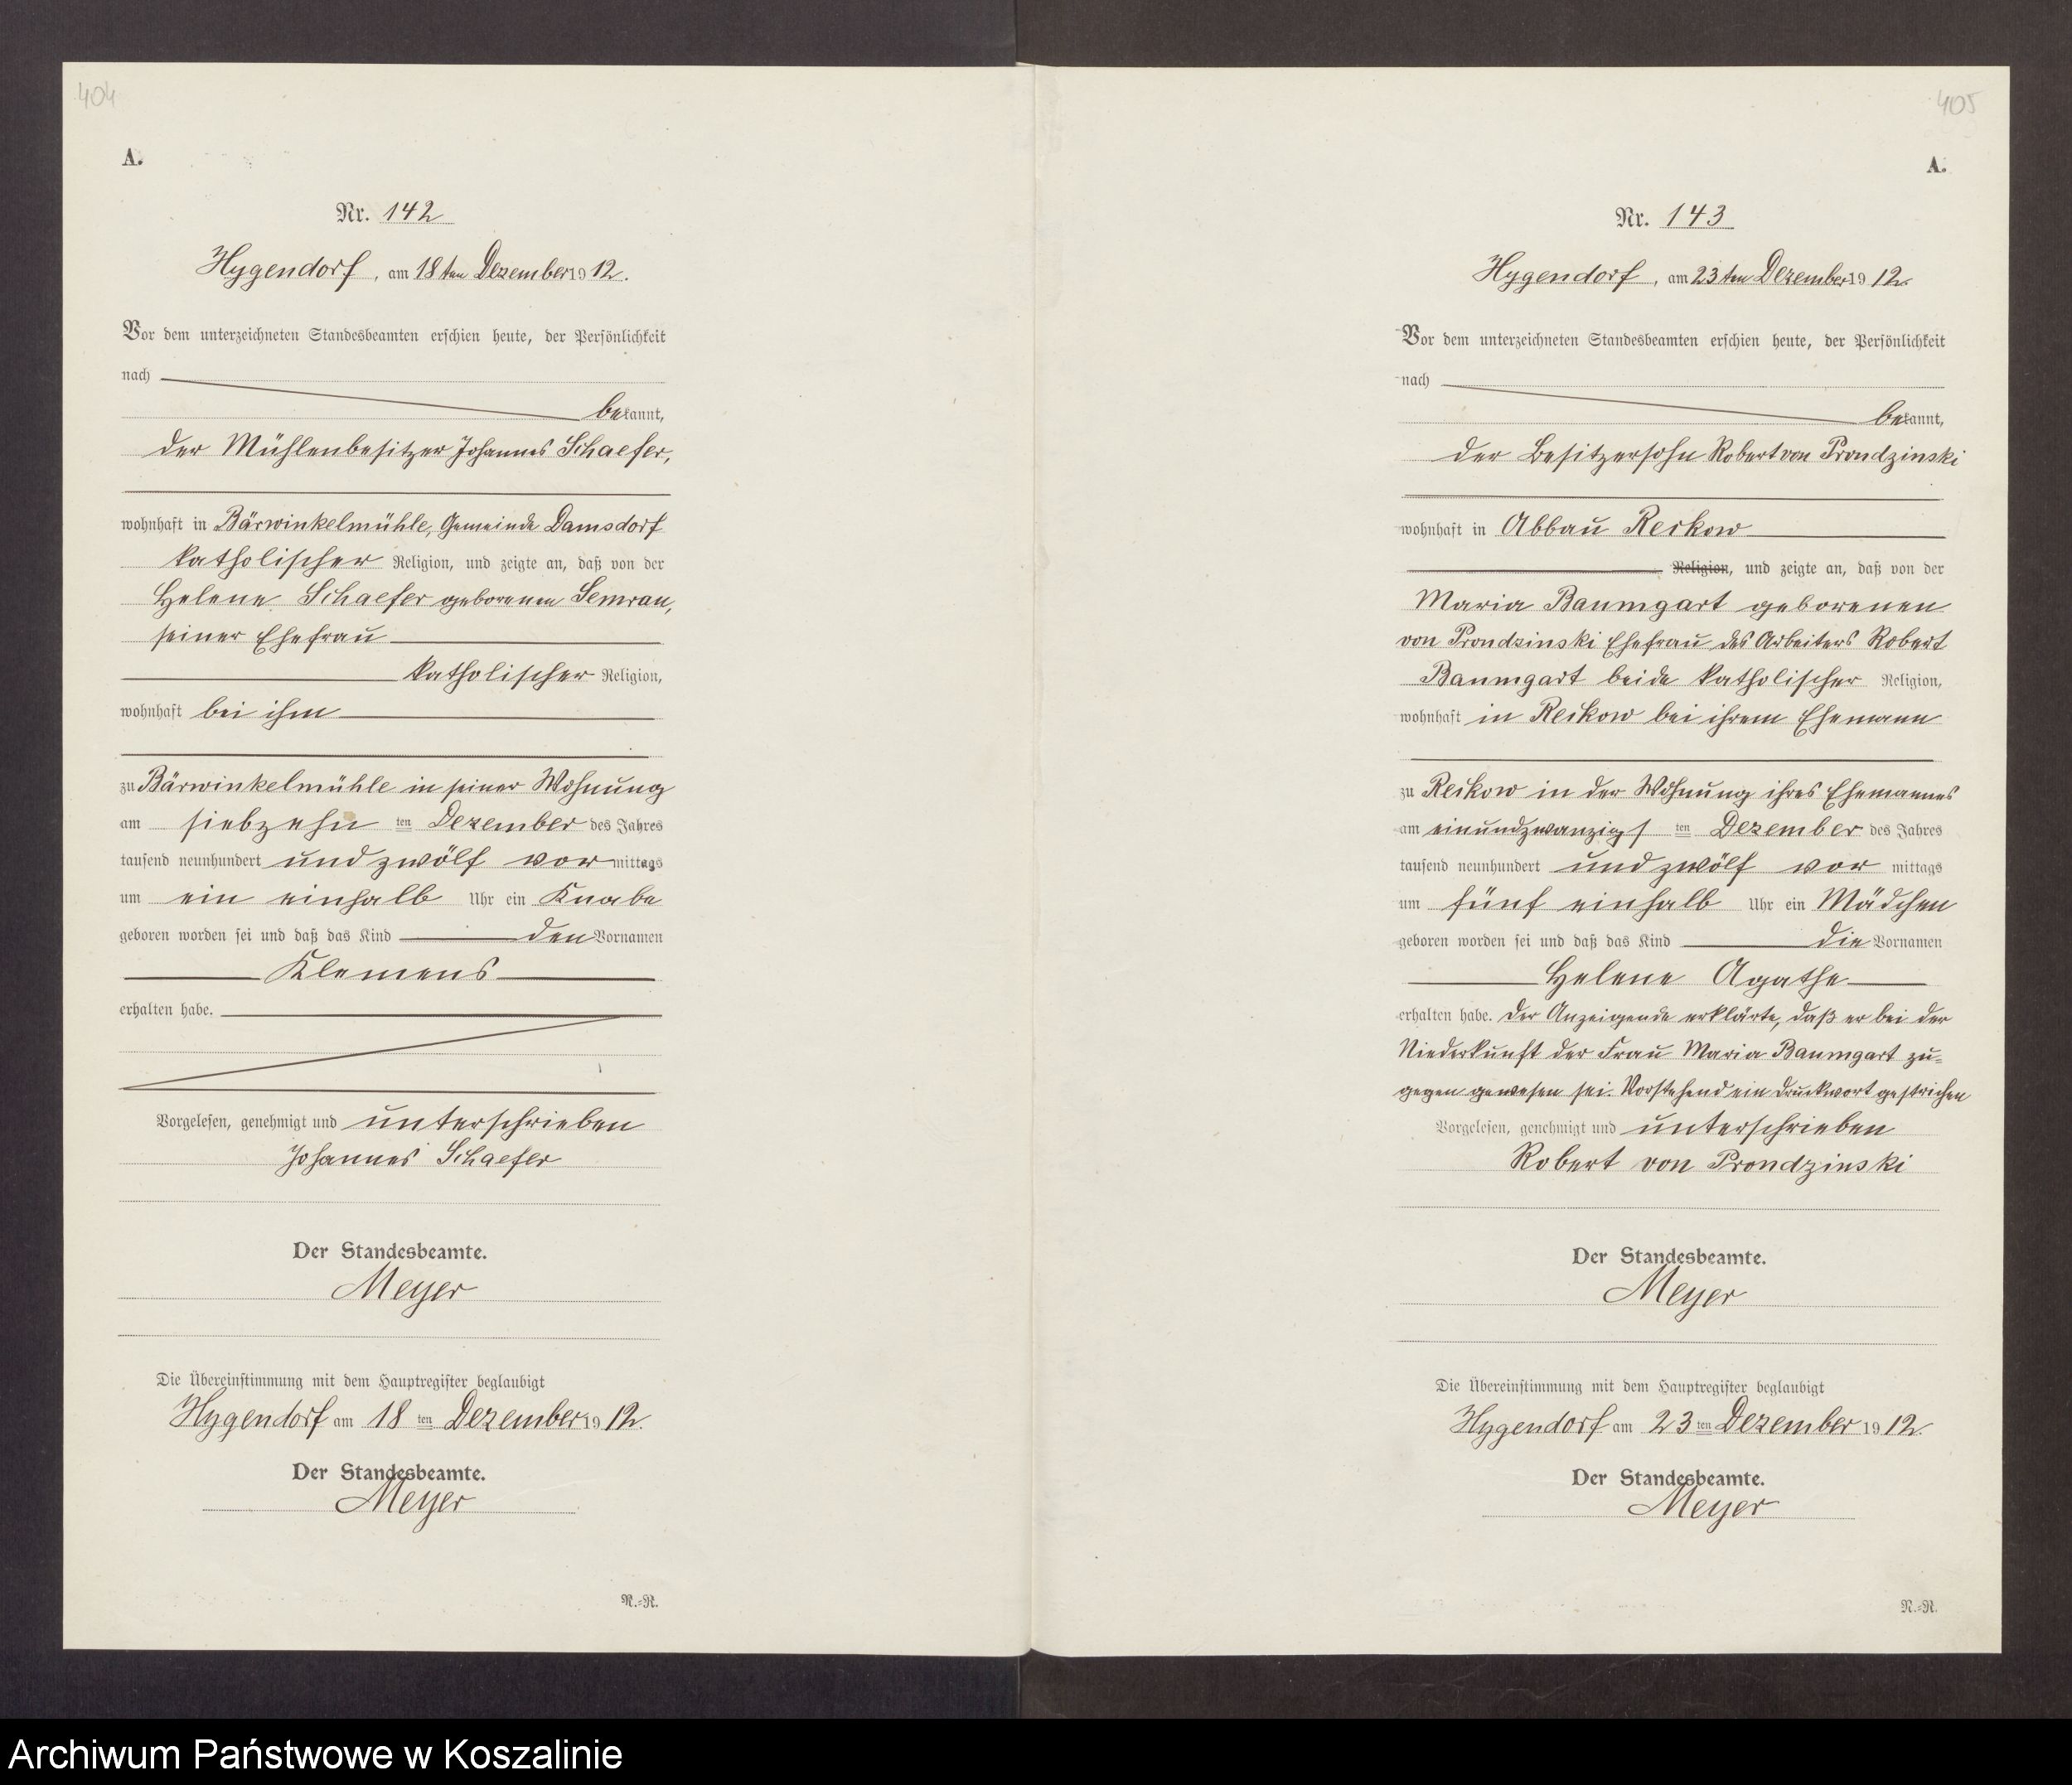 404
A.
Nr. 142
Hygendorf, am 18ten Dezember 1912.
Vor dem unterzeichneten Standesbeamten erschien heute, der Persönlichkeit
nach
bekannt,
der Mühlenbesitzer Johannes Schaefer,
wohnhaft in Bärwinkelmühle, Gemeinde Damsdorf
katholischer Religion, und zeigte an, daß von der
Helene Schaefer geborenen Semrau,
seiner Ehefrau
katholischer Religion,
wohnhaft bei ihm
zu Bärwinkelmühle in seiner Wohnung
am siebzehn ten Dezember des Jahres
tausend neunhundert und zwölf vor mittags
um ein einhalb Uhr ein Knabe
geboren worden sei und daß das Kind den Vornamen
Klemens
erhalten habe.
Vorgelesen, genehmigt und unterschrieben
Johannes Schaefer
Der Standesbeamte.
Meyer
Die Übereinstimmung mit dem Hauptregister beglaubigt
Hygendorf am 18 ten Dezember 1912.
Der Standesbeamte.
Meyer
N.-R.
405
A.
Nr. 143
Hygendorf, am 23ten Dezember 1912.
Vor dem unterzeichneten Standesbeamten erschien heute, der Persönlichkeit
nach
bekannt,
der Besitzersohn Robert von Prondzinski
wohnhaft in Abbau Reckow
Religion, und zeigte an, daß von der
Maria Baumgart geborenen
von Prondzinski Ehefrau des Arbeiters Robert
Baumgart beide katholischer Religion,
wohnhaft in Reckow bei ihrem Ehemann
zu Reckow in der Wohnung ihres Ehemannes
am einundzwanzigs ten Dezember des Jahres
tausend neunhundert und zwölf vor mittags
um fünf einhalb Uhr ein Mädchen
geboren worden sei und daß das Kind die Vornamen
Helene Agathe
erhalten habe. Der Anzeigende erklärte, daß er bei der
Niederkunft der Frau Maria Baumgart zu-
gegen gewesen sei. Vorstehend ein Druckwort gestrichen
Vorgelesen, genehmigt und unterschrieben
Robert von Prondzinski
Der Standesbeamte.
Meyer
Die Übereinstimmung mit dem Hauptregister beglaubigt
Hygendorf am 23 ten Dezember 1912.
Der Standesbeamte.
Meyer
N.-R.
Archiwum Państwowe w Koszalinie